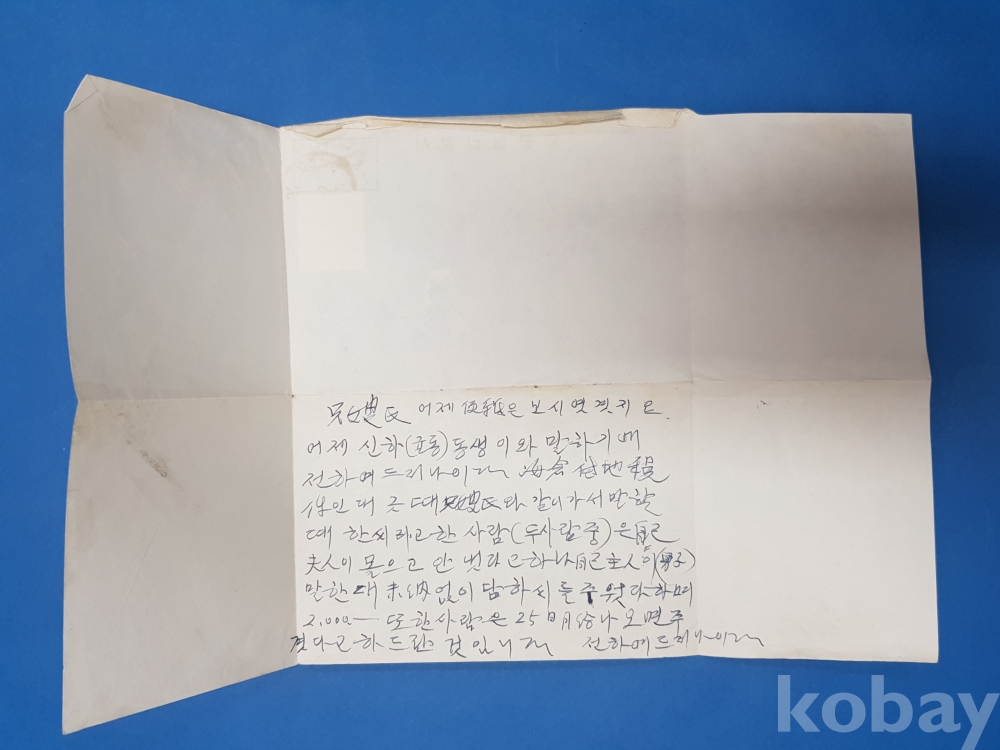 兄嫂氏 어제 便紙은 보시엿겟지요
어제 신하(군동)동생이와 말하기에
전하여드리나이다 海倉垈地稅
件인대 귿때兄嫂氏와 같이가서말할
때 한씨라고한 사람(두사람중)은自己
夫人이 몰으고 안냇다고하나自己主人이(男子)
말한대 未納없이 담하씨를주웟다하며
2,000- 또한사람은 25日月給나오면주
겟다고하드란 것입니다 전하여드리나이다
kobay